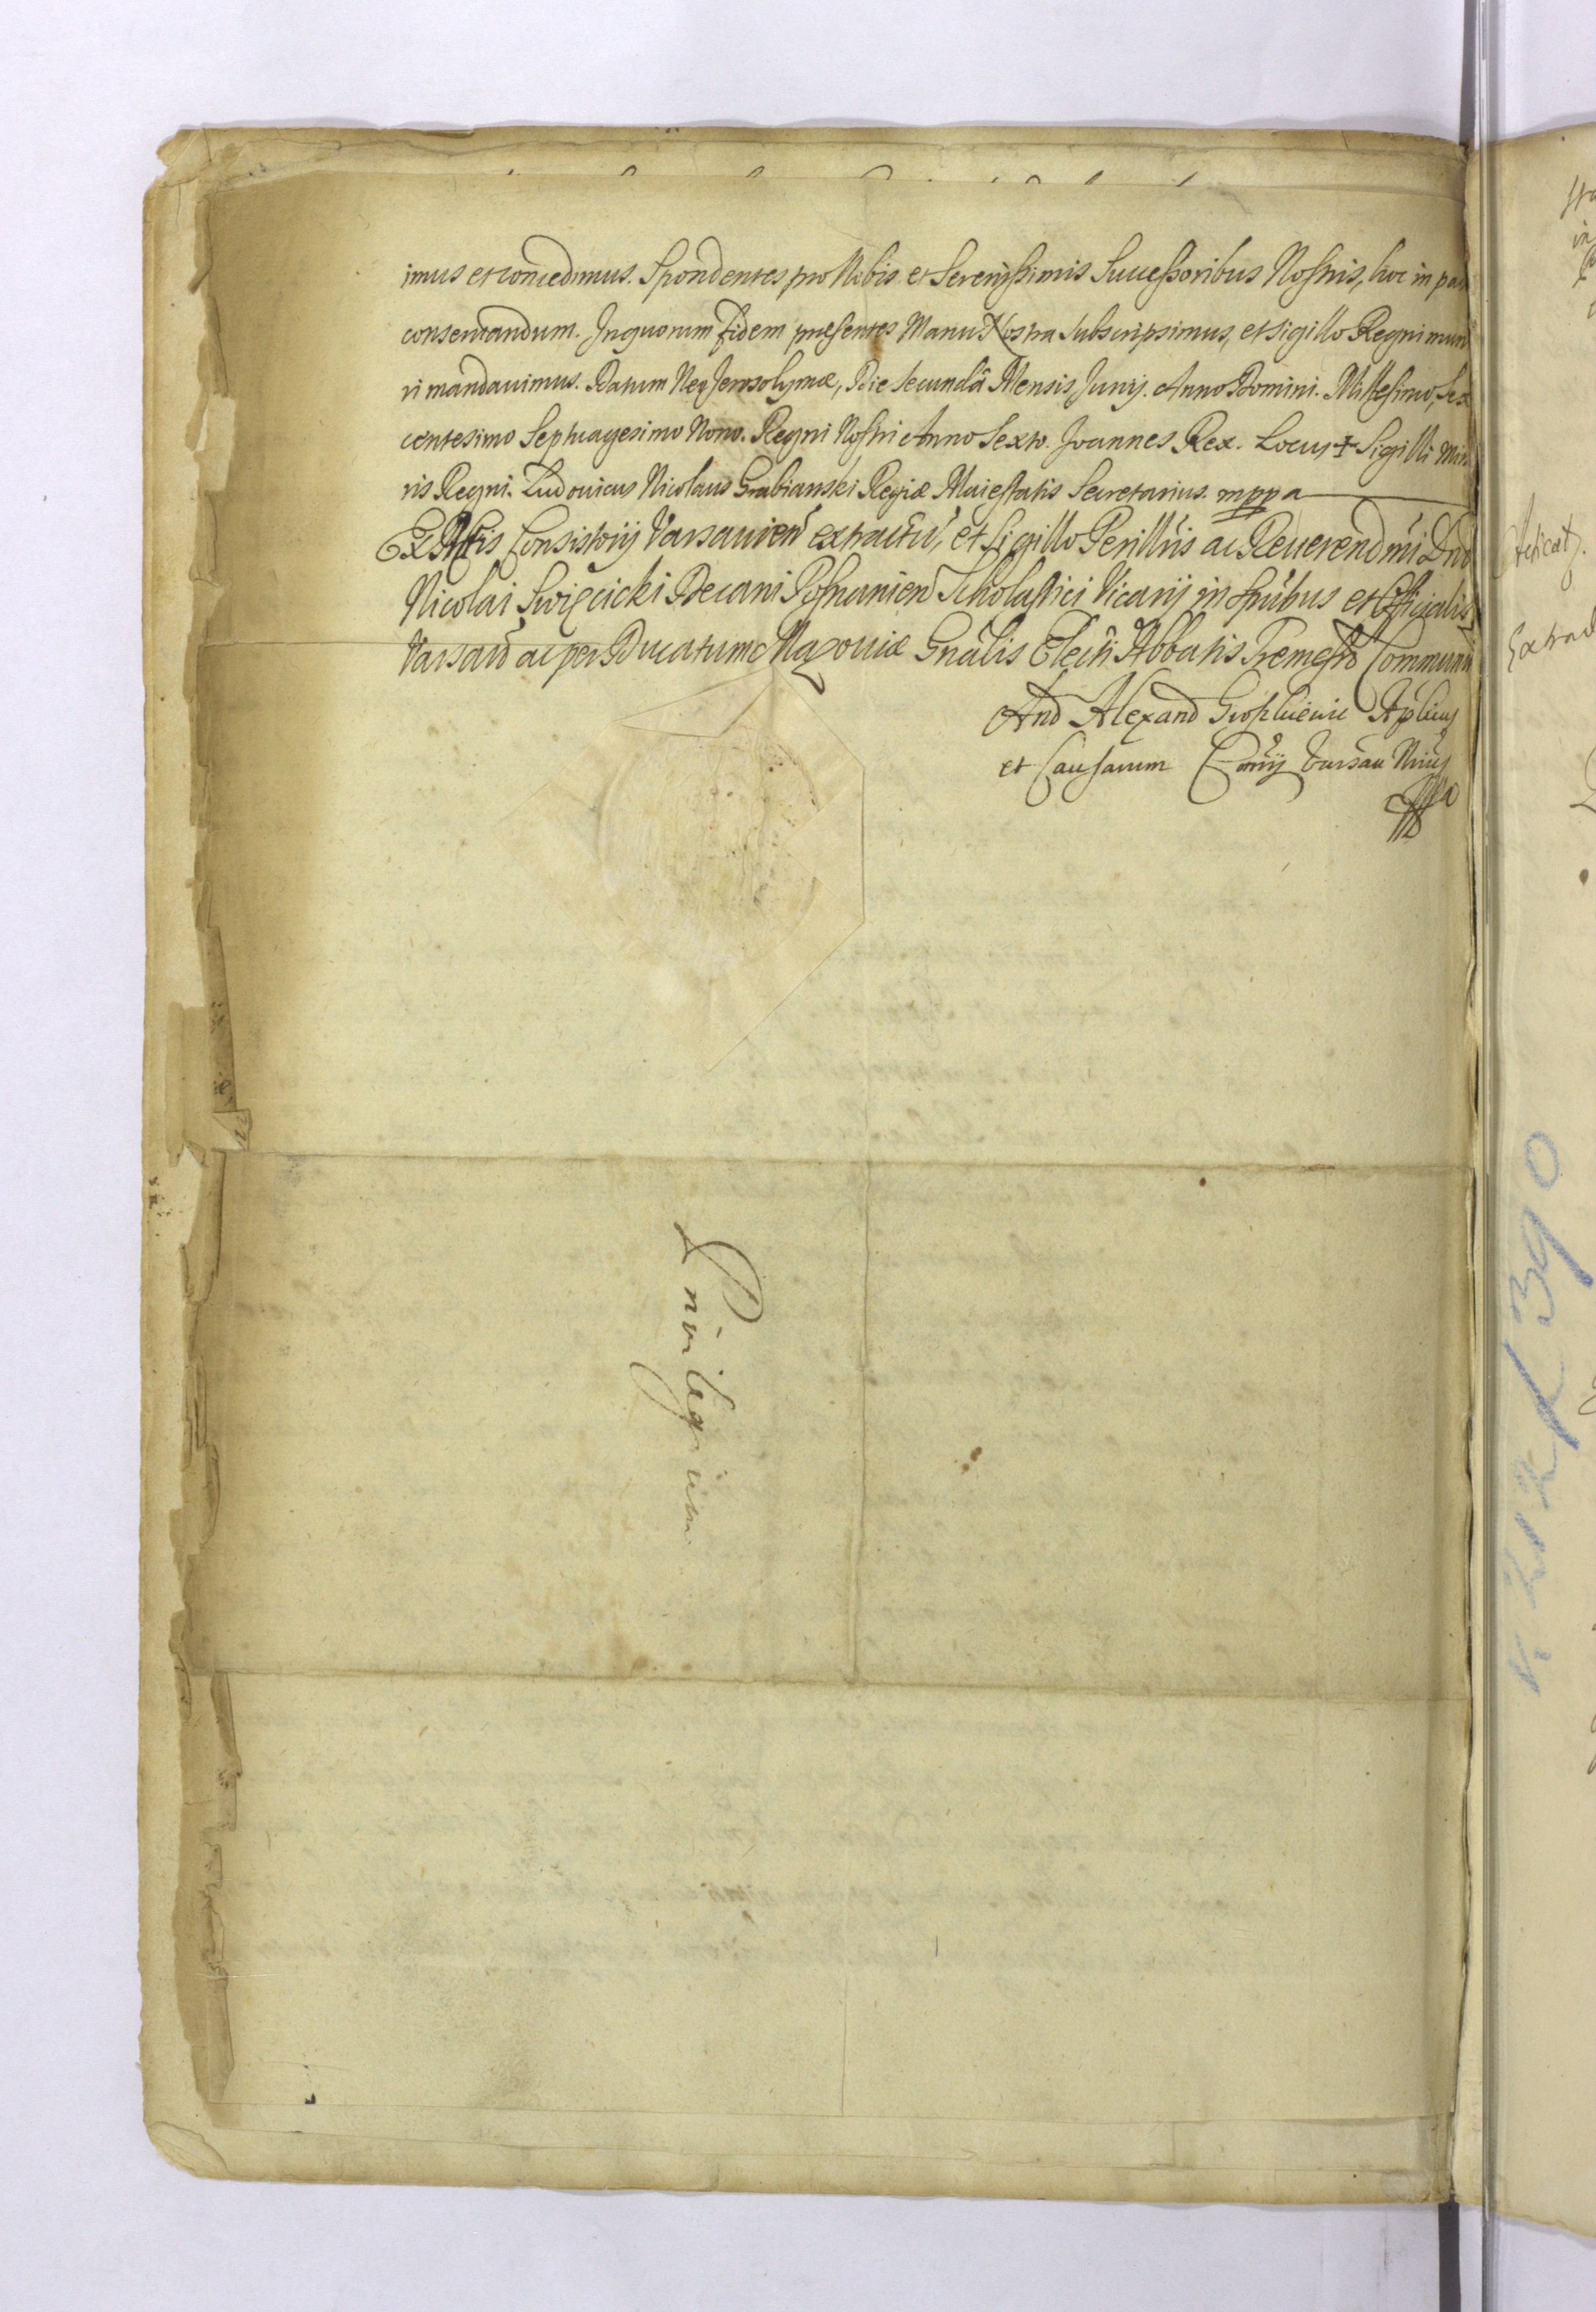 imus et concedimus. Spondentes pro Nobis et Serenissimis Successoribus Nostris, hoc in
conseruandum. In quorum fidem presentes Manu Nostra subscripsimus, et sigillo Regni mun
ri mandauimus. Datum Neo Jerosolymæ, Die secundâ Mensis Junij. Anno Domini. Millesimo, Sex
centesimo Septuagesimo Nono. Regni Nostri Anno Sexto. Joannes Rex. Locus + Sigilli Mino
ris Regni. Ludouicus Nicolaus Grabianski Regiæ Maiestatis Secretarius. mppa
Ex Actis Consistorij Varsauien extractu, et Sigillo Perillris ac Reuerendmi Dni
Nicolai Swięcicki Decani Posnanien Scholastici Vicarij in Spribus et Officialis
Varsauien ac per Ducatum Mazouiæ Gnalis Electi Abbatis Communi
And Alexand Aplicus
et Causarum Varsau
Priuilegium
390
Extrad